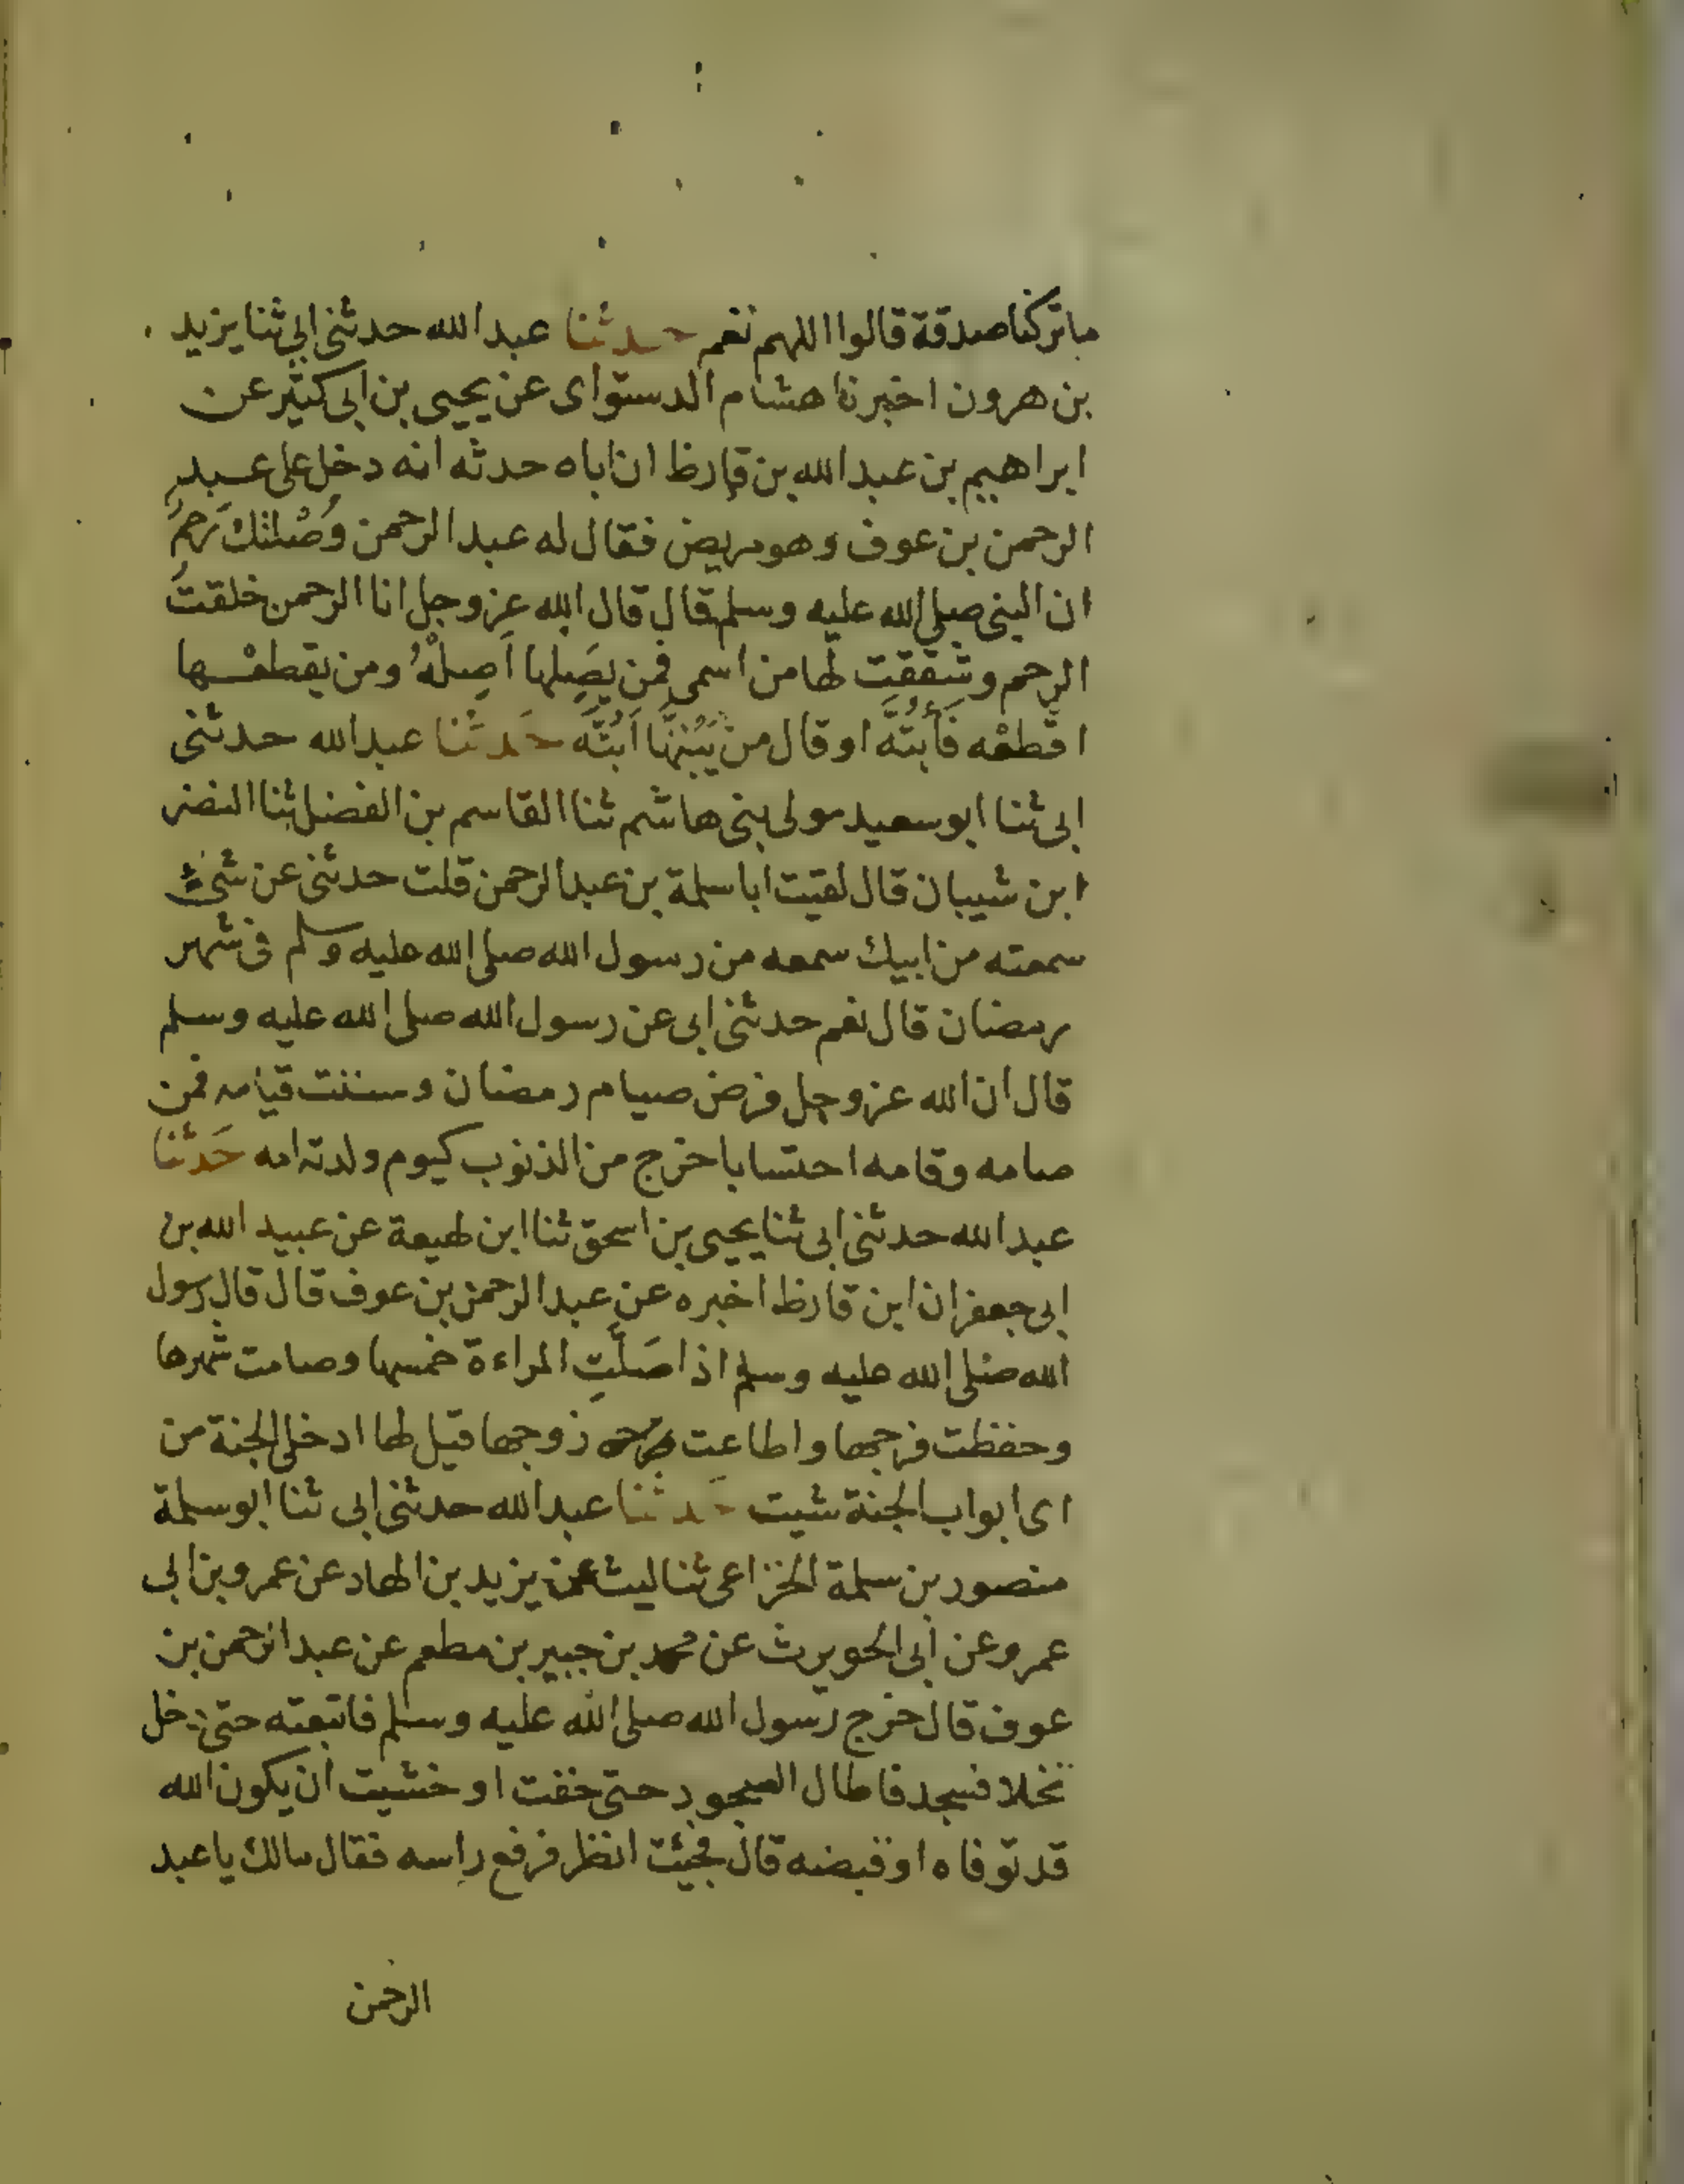 ماتركنا صدقة قالوا اللهم نعم حدثنا عبد الله حدثنى ابى ثنا يزيد
بن هرون اخبرنا هشام الدستواى عن يحيى بن ابى كثير عن
ابراهيم بن عبد الله بن قارظ ان اباه حدثه انه دخل على عبد
الرحمن بن عوف وهو مريض فقال له عبد الرحمن وَصَلتك رَحِمُ
ان النبى صلى الله عليه وسلم قال قال الله عز وجل انا الرحمن خلقتُ
الرحم وشققت لها من اسمى فمن يَصِلها اَصِلْهُ ومن يقطعْها
اقطعْه فَأَبُتَّه او قال من يَبُتَّها اَبُتَّه حَدثنا عبد الله حدثنى
ابى ثنا ابو سعيد مولى بنى هاشم ثنا القاسم بن الفضل ثنا النضر
ابن شيبان قال لقيت ابا سلمة بن عبد الرحمن قلت حدثنى عن شئ
سمعته من ابيك سمعه من رسول الله صلى الله عليه وسلم فى شهر
رمضان قال نعم حدثنى ابى عن رسول الله صلى الله عليه وسلم
قال ان الله عز وجل فرض صيام رمضان وسننت قيامه فمن
صامه وقامه احتسابا خرج من الذنوب كيوم ولدته امه حَدثنا
عبد الله حدثنى ابى ثنا يحيى بن اسحق ثنا ابن لهيعة عن عبيد الله بن
ابى جعفر ان ابن قارظ اخبره عن عبد الرحمن بن عوف قال قال رسول
الله صلى الله عليه وسلم اذا صَلَّتِ المراءة خمسها وصامت شهرها
وحفظت فرجها واطاعت زوجها قيل لها ادخلى الجنة من
اى ابواب الجنة شيت حَدثنا عبد الله حدثنى ابى ثنا ابو سلمة
منصور بن سلمة الخزاعى ثنا ليث عن يزيد بن الهاد عن عمرو بن ابى
عمرو عن ابى الحويرث عن محمد بن جبير بن مطعم عن عبد الرحمن بن
عوف قال خرج رسول الله صلى الله عليه وسلم فاتبعته حتى دخل
نخلا فسجد فاطال السجود حتى خفت او خشيت ان يكون الله
قد توفاه او قبضه قال فجئت انظر فرفع راسه فقال مالك يا عبد
الرحمن